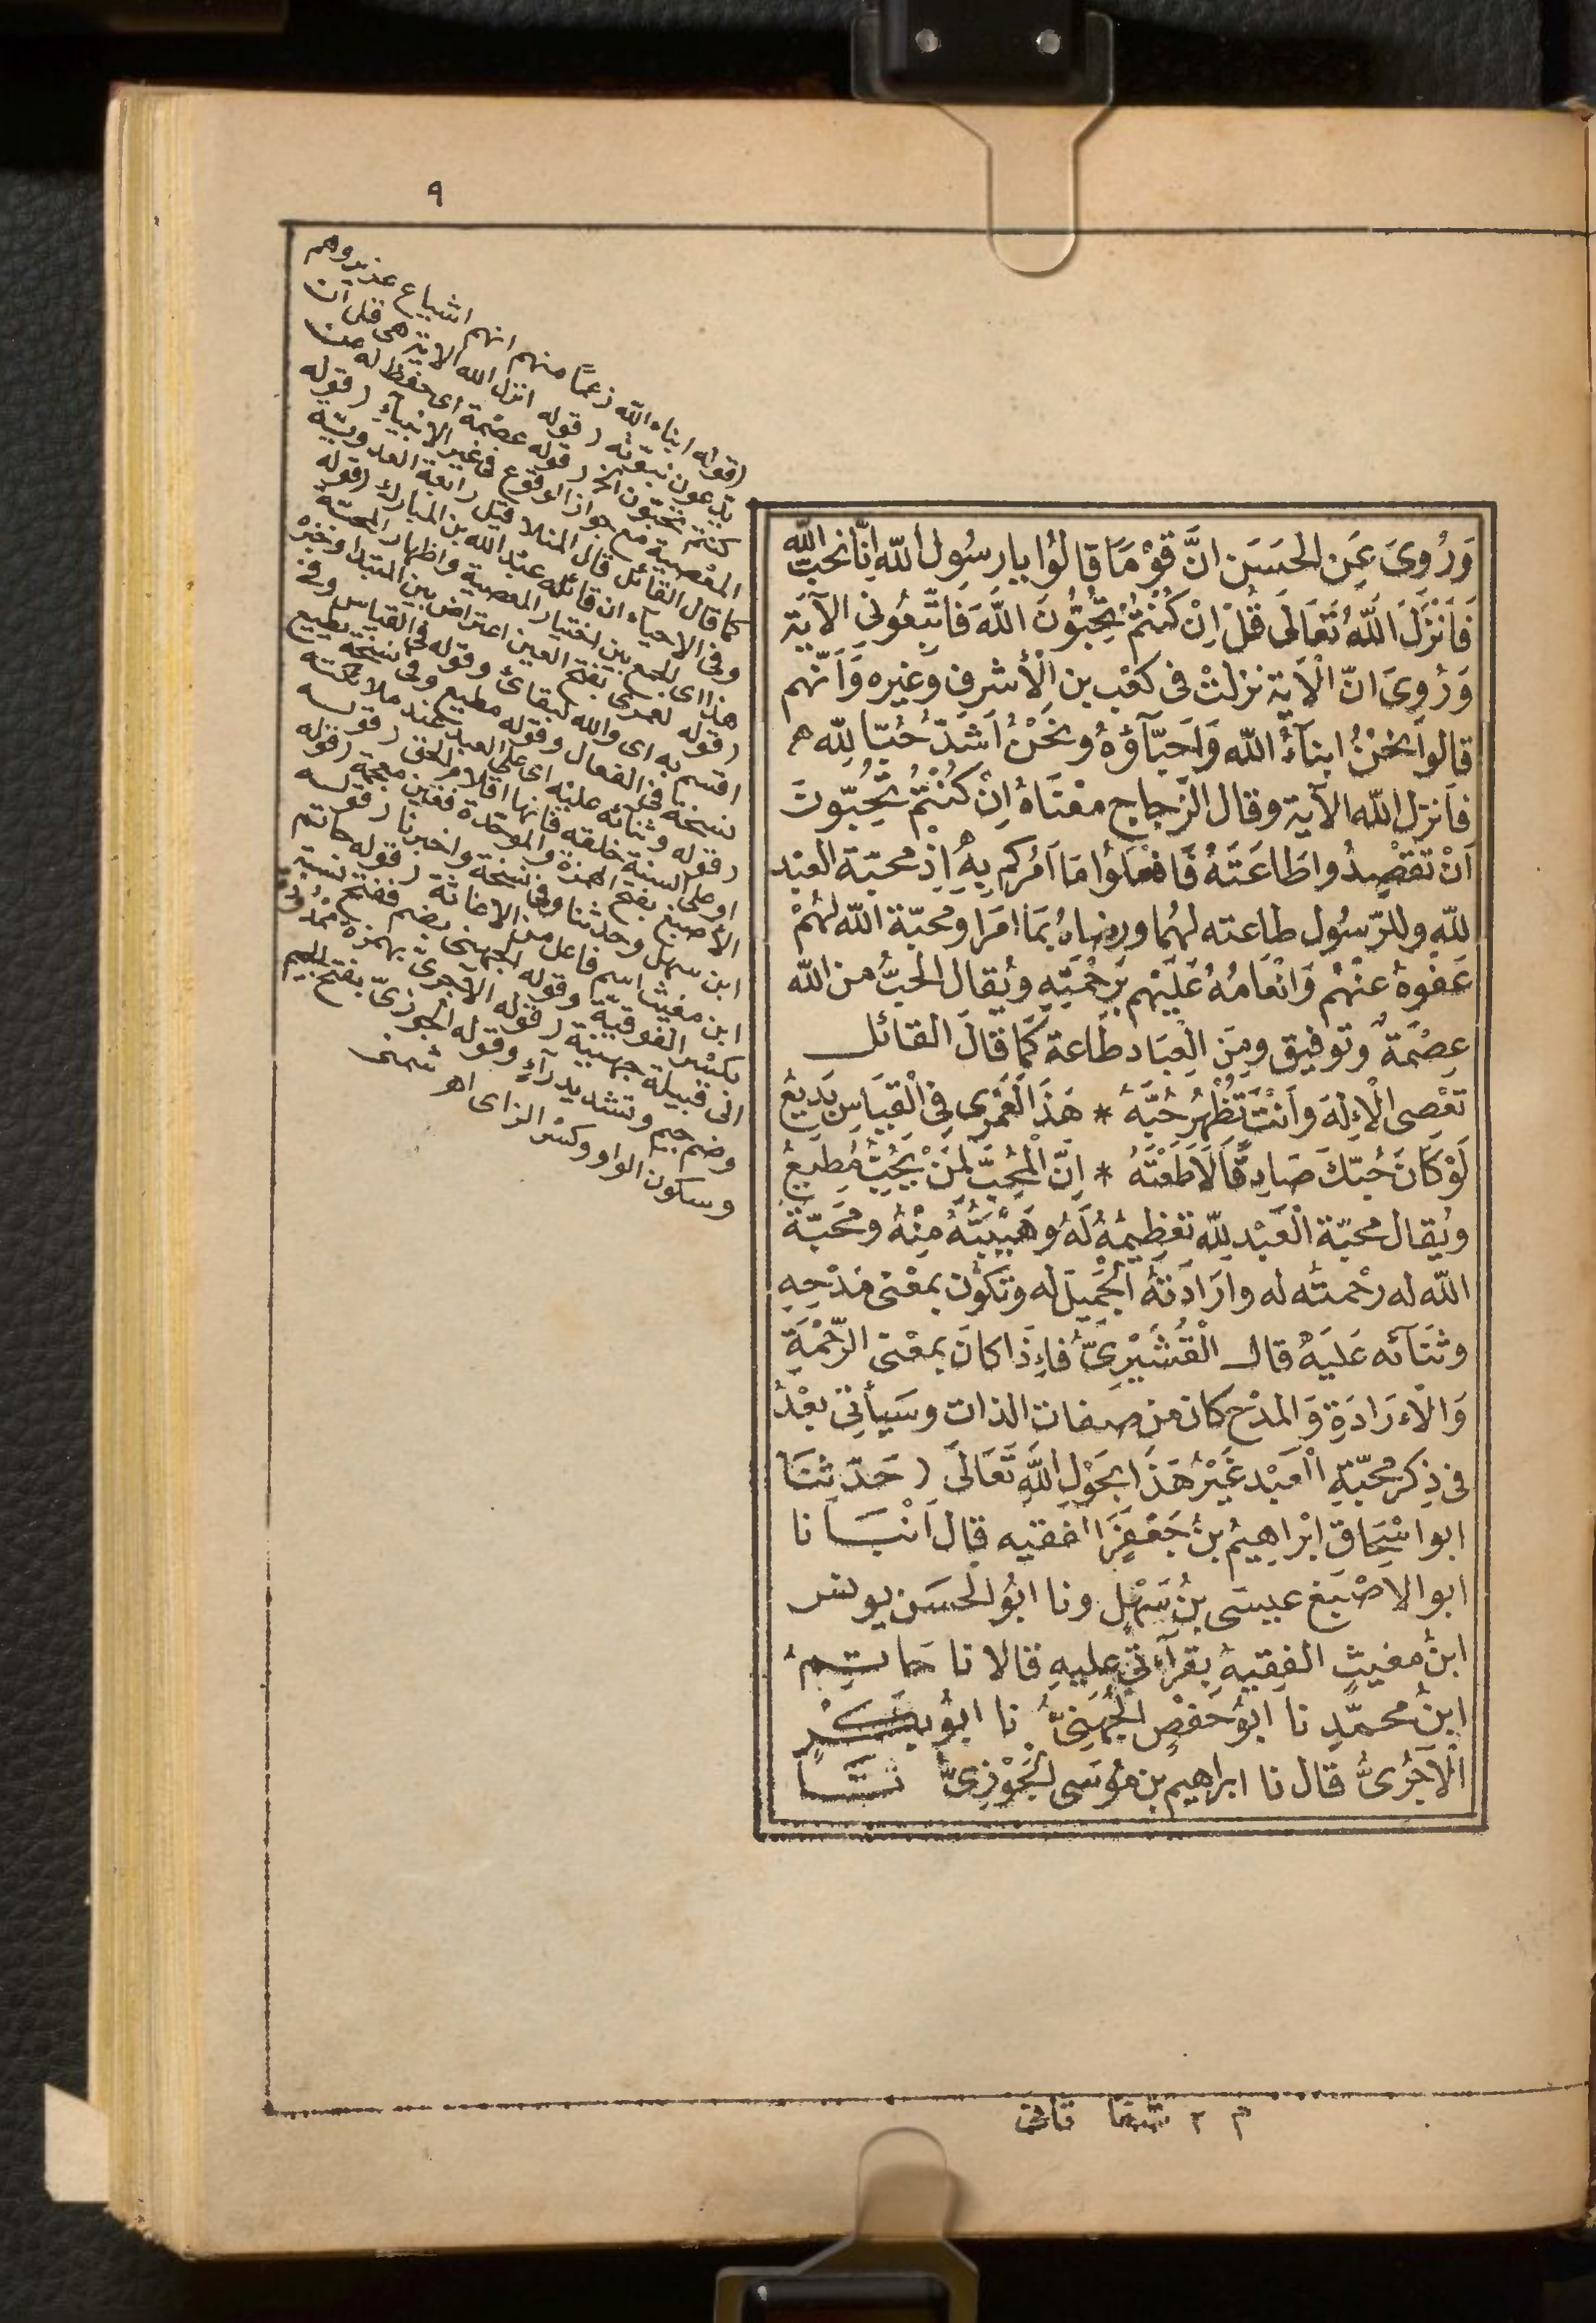 ٩
وَرُوِىَ عَنِ الحَسَنِ انَّ قَوْمًا قَالُوا يا رسُول اللّه اِنَّا نحبّ اللّه
فَاَنْزَلَ اللّهُ تَعَالَى قُلْ اِنْ كُنْتُمْ تُحِبُّونَ اللّهَ فَاتَّبِعُونِى الآيَة
وَرُوِىَ انّ الْآية نزلتْ فى كعْب بن الْأشرف وَغيره وَاَنَّهُم
قالوا نَحْنُ ابنآءُ اللّه وَاَحِبَّآؤُهُ ونَحْنُ اَشَدّ حُبّا لِلّه
فَاَنزل اللّه الآية وقال الزجاج معْنَاهُ اِنْ كُنْتُمْ تُحِبّونَ
اَنْ تَقْصِدُوا طَاعَتَهُ فَافْعَلوُا مَا اَمَرُكم بِهِ اِذْ محبّة العبْد
لِلّهِ وللرّسُول طاعته لهُما ورضاهُ بمَا امَرَا ومحبّة اللّه لهُمْ
عَفْوهُ عنْهُم وَانْعَامُهُ عَلَيْهم بِرَحْمَتِهِ ويُقال الْحبُّ من اللّه
عِصْمَةٌ وتوفيق ومِنَ الْعِبَاد طَاعة كَمَا قالَ القائل
تَعْصِى الْاِلَهَ وَاَنْتَ تُظْهِرُ حُبَّهُ * هَذَا لَعَمْرِى فِى الْقِيَاسِ بَدِيعُ
لَوْ كَانَ حُبّكَ صَادِقًا لَاَطَعْتَهُ * اِنّ الْمُحِبَّ لِمَنْ يُحِبُّ مُطِيعُ
ويُقال محبّة الْعَبْد لِلّه تعْظِيمُهُ لَهُ وَهَيْبَتُهُ مِنْهُ ومَحَبّة
اللّه له رحْمتُه له وارَادَتهُ الْجَمِيلَ له وتكُون بمعْنى مَدْحِهِ
وثَنَآئه عَلَيْهِ قال الْقُشَيْرِىُّ فَاِذَا كَانَ بمعْنى الرَّحْمَةِ
وَالْاِرَادَةِ وَالمدْح كان من صفات الذات وسَيأتى بعْدُ
فى ذِكر محبّةِ العَبْد غَيْرُ هَذَا بحَوْلِ اللَّهِ تَعَالَى ( حَدّثنَا
ابو اسْحَاق اِبْراهِيمُ بنُ جَعْفَرٍ الفقيه قال اَنْبَأنا
ابو الاَصْبَغ عيسَى بنُ سَهْلٍ ونا ابُو الحَسَن يونس
ابنُ مغيثٍ الفقِيهُ بقرآءتى عليهِ قالا نا حَاتِمُ
ابنُ محمّدٍ نا ابوُ حَفْصٍ الْجُهَنِىُّ نا ابوُ بَكْرٍ
الْآجُرِىُّ قال نا ابراهيم بن مُوسَى الْجَوْزِىّ نَا
(قوله ابناء اللّه زعمًا منهم انهم اشياع عزير وهم
يدعون نبوته ( قوله انزل اللّه الآية هى قل ان
كنتم تحبّون الخ ( قوله عصْمة اى حفظ له من
المعْصية مع جواز الوقوع فى غير الانبيآء ( قوله
كما قال القائل قال المنلا قيل رابعة العدويّة
وفى الاحياء ان قائله عبْد اللّه بن المبارك (قوله
هذا اى الجمع بين اختيار المعصية واظهار المحبّة
(قوله لعمرى بفتح العين اعتراض بين المبتدا وخبره
اقسم به اى واللّه لبقائى وقوله فى القياس وفى
نسخة فى الفعال وقوله مطيع وفى نسخة يطيع
(قوله وثنائه عليْه اى على العبد عند ملائكته
اوعلى السنة خلقه فانها اقلام الحق ( قوله
الاصبغ بفتح الهمزة والموحّدة فغين معجمة (قوله
ابن سهل وحدثنا وفى نسخة واخبرنا ( قوله
ابن مغيث اسم فاعل من الاغاثة ( قوله حاتم
بكسْر الفوقيّة وقوله الجهنى بضم ففتح نسبة
الى قبيلة جهينة ( قوله الآجرىّ بهمزة ممْدُودة
وضم جيم وتشديد رآءٍ وقوله الجوزىّ بفتح الجيم
وسكون الواو وكسْر الزاى اهـ شمنى